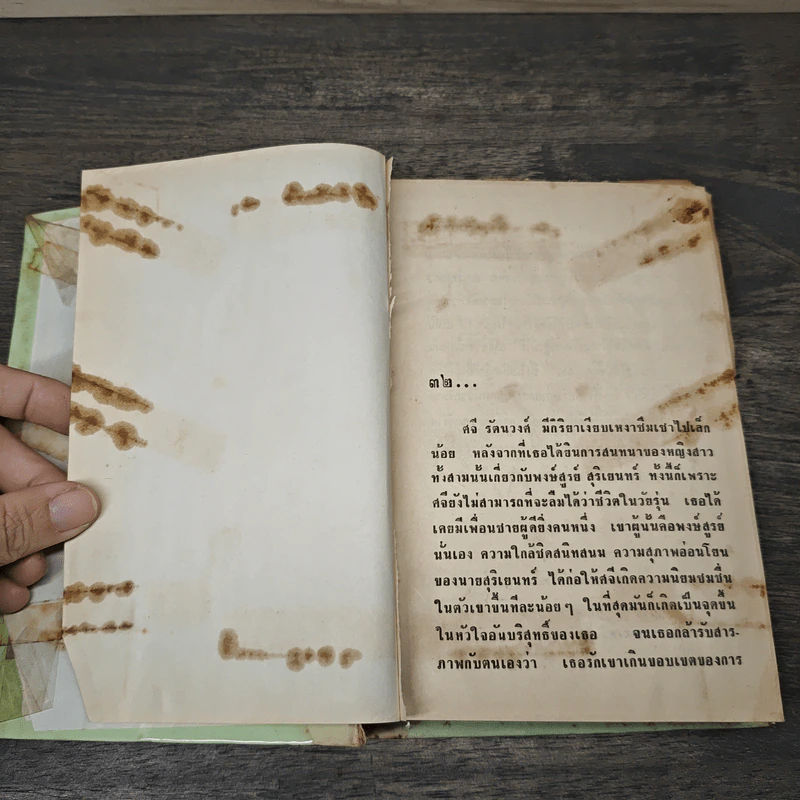 ๓๒...
ศจี รัตนวงศ์ มีกิริยาเงียบเหงาซึมเซาไปเล็ก
น้อย หลังจากที่เธอได้ยินการสนทนาของหญิงสาว
ทั้งสามนั้นเกี่ยวกับพงษ์สูรย์ สุริเยนทร์ ทั้งนี้ก็เพราะ
ศจียังไม่สามารถที่จะลืมได้ว่าชีวิตในวัยรุ่น เธอได้
เคยมีเพื่อนชายผู้ดียิ่งคนหนึ่ง เขาผู้นั้นคือพงษ์สูรย์
นั่นเอง ความใกล้ชิดสนิทสนม ความสุภาพอ่อนโยน
ของนายสุริเยนทร์ ได้ก่อให้ศจีเกิดความนิยมชมชื่น
ในตัวเขาขึ้นทีละน้อยๆ ในที่สุดมันก็เกิดเป็นจุดขึ้น
ในหัวใจอันบริสุทธิ์ของเธอ จนเธอกล้ารับสาร-
ภาพกับตนเองว่า เธอรักเขาเกินขอบเขตของการ